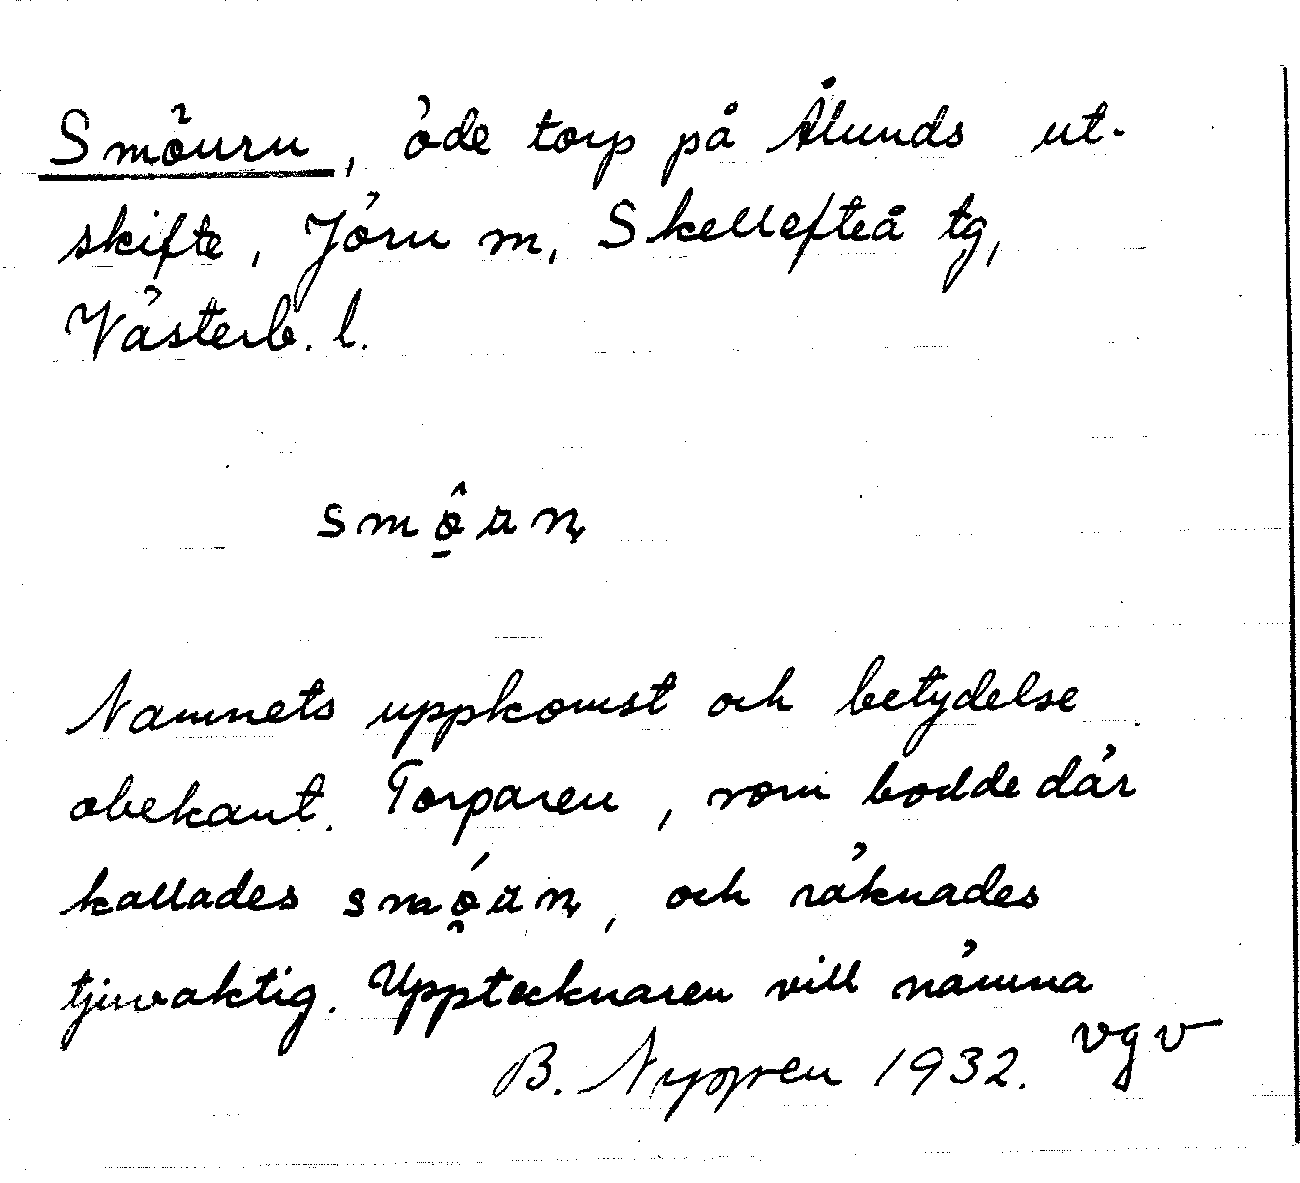 Smöurn, öde torp på Ålunds ut-
skifte, Jörn m, Skellefteå tg,
Västerb. l.
Namnets uppkomst och betydelse
obekant. Torparen, som bodde där
kallades, och räknades
tjuvaktig. Upptecknaren vill nämna
B. Nygren 1932. vgv